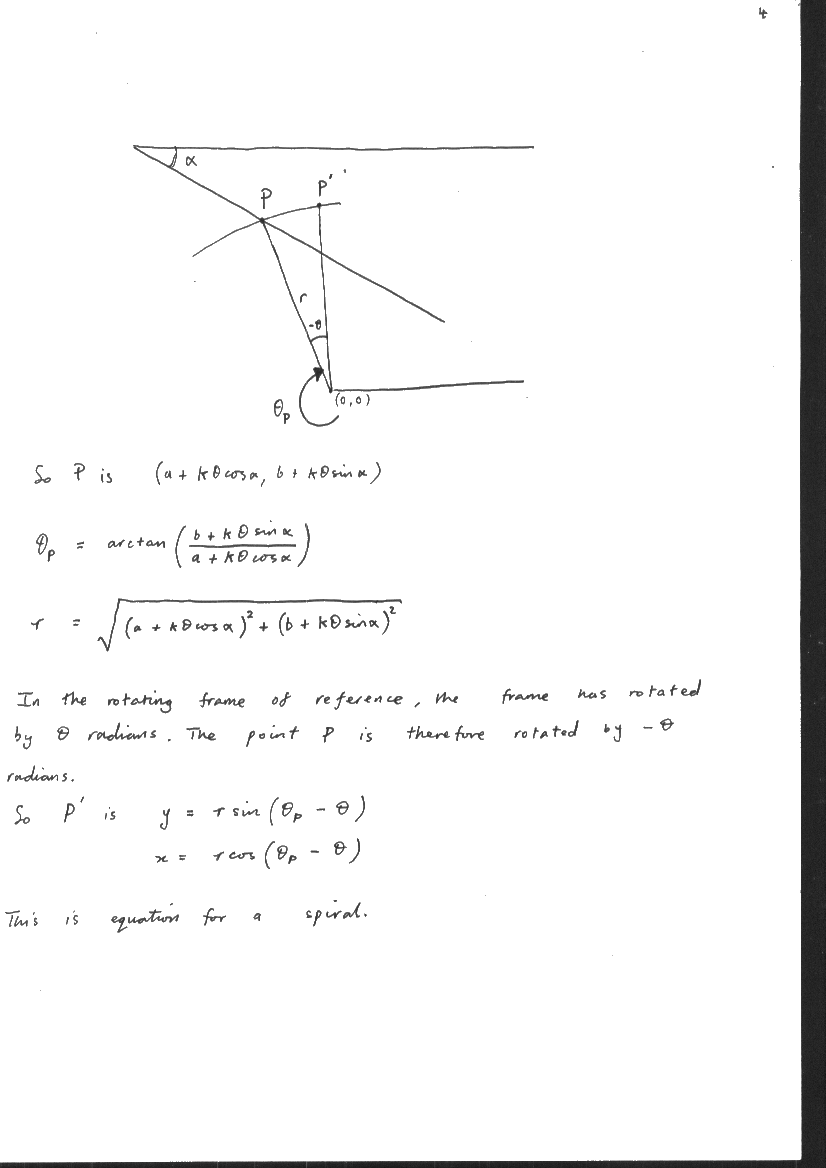 4
α
P'
P
r
-θ
θp
(0,0)
So P is (a + kθcosα, b + kθsinα)
θp = arctan ( (b + kθ sinα) / (a + kθcosα) )
r = √( (a + kθcosα)² + (b + kθsinα)² )
In the rotating frame of reference, the frame has rotated
by θ radians. The point P is therefore rotated by -θ
radians.
So P' is y = r sin (θp - θ)
x = r cos (θp - θ)
This is equation for a spiral.